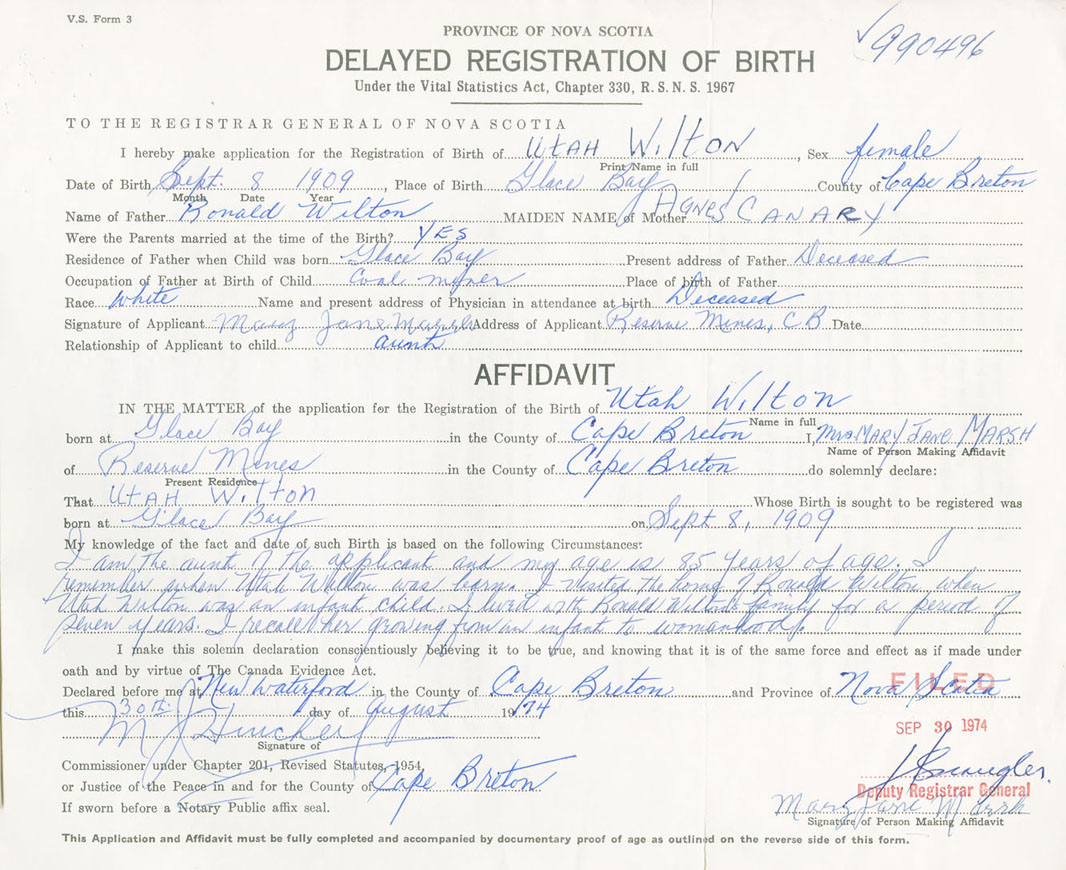 V.S. Form 3
PROVINCE OF NOVA SCOTIA
990496
DELAYED REGISTRATION OF BIRTH
Under the Vital Statistics Act, Chapter 330, R. S. N. S. 1967
TO THE REGISTRAR GENERAL OF NOVA SCOTIA
I hereby make application for the Registration of Birth of UTAH WILTON, Sex female
Print Name in full
Date of Birth Sept. 8 1909, Place of Birth Glace Bay County of Cape Breton
Month Date Year
Name of Father Ronald Wilton MAIDEN NAME of Mother AGNES CANARY
Were the Parents married at the time of the Birth? YES
Residence of Father when Child was born Glace Bay Present address of Father Deceased
Occupation of Father at Birth of Child Coal miner Place of birth of Father
Race white Name and present address of Physician in attendance at birth Deceased
Signature of Applicant Mary Jane Marsh Address of Applicant Reserve Mines, CB Date
Relationship of Applicant to child aunt
AFFIDAVIT
IN THE MATTER of the application for the Registration of the Birth of Utah Wilton
Name in full
born at Glace Bay in the County of Cape Breton I, Mrs MARY JANE MARSH
Name of Person Making Affidavit
of Reserve Mines in the County of Cape Breton do solemnly declare:
Present Residence
That UTAH WILTON Whose Birth is sought to be registered was
born at Glace Bay on Sept 8, 1909
My knowledge of the fact and date of such Birth is based on the following Circumstances:
I am the aunt of the applicant and my age is 85 years of age. I
remember when Utah Wilton was born. I visited the home of Ronald Wilton when
Utah Wilton was an infant child. I lived with Ronald Wilton's family for a period of
seven years. I recall her growing from an infant to womanhood.
I make this solemn declaration conscientiously believing it to be true, and knowing that it is of the same force and effect as if made under
oath and by virtue of The Canada Evidence Act.
Declared before me at New Waterford in the County of Cape Breton and Province of Nova Scotia
FILED
this 30th day of August 1974
SEP 30 1974
Signature of
Commissioner under Chapter 201, Revised Statutes, 1954,
or Justice of the Peace in and for the County of Cape Breton
Deputy Registrar General
If sworn before a Notary Public affix seal.
Mary Jane Marsh
Signature of Person Making Affidavit
This Application and Affidavit must be fully completed and accompanied by documentary proof of age as outlined on the reverse side of this form.